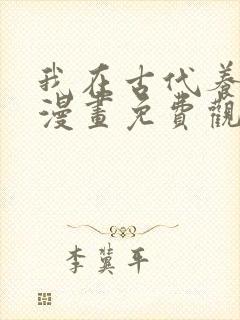 我在古代養
漫畫免費觀
李冀平